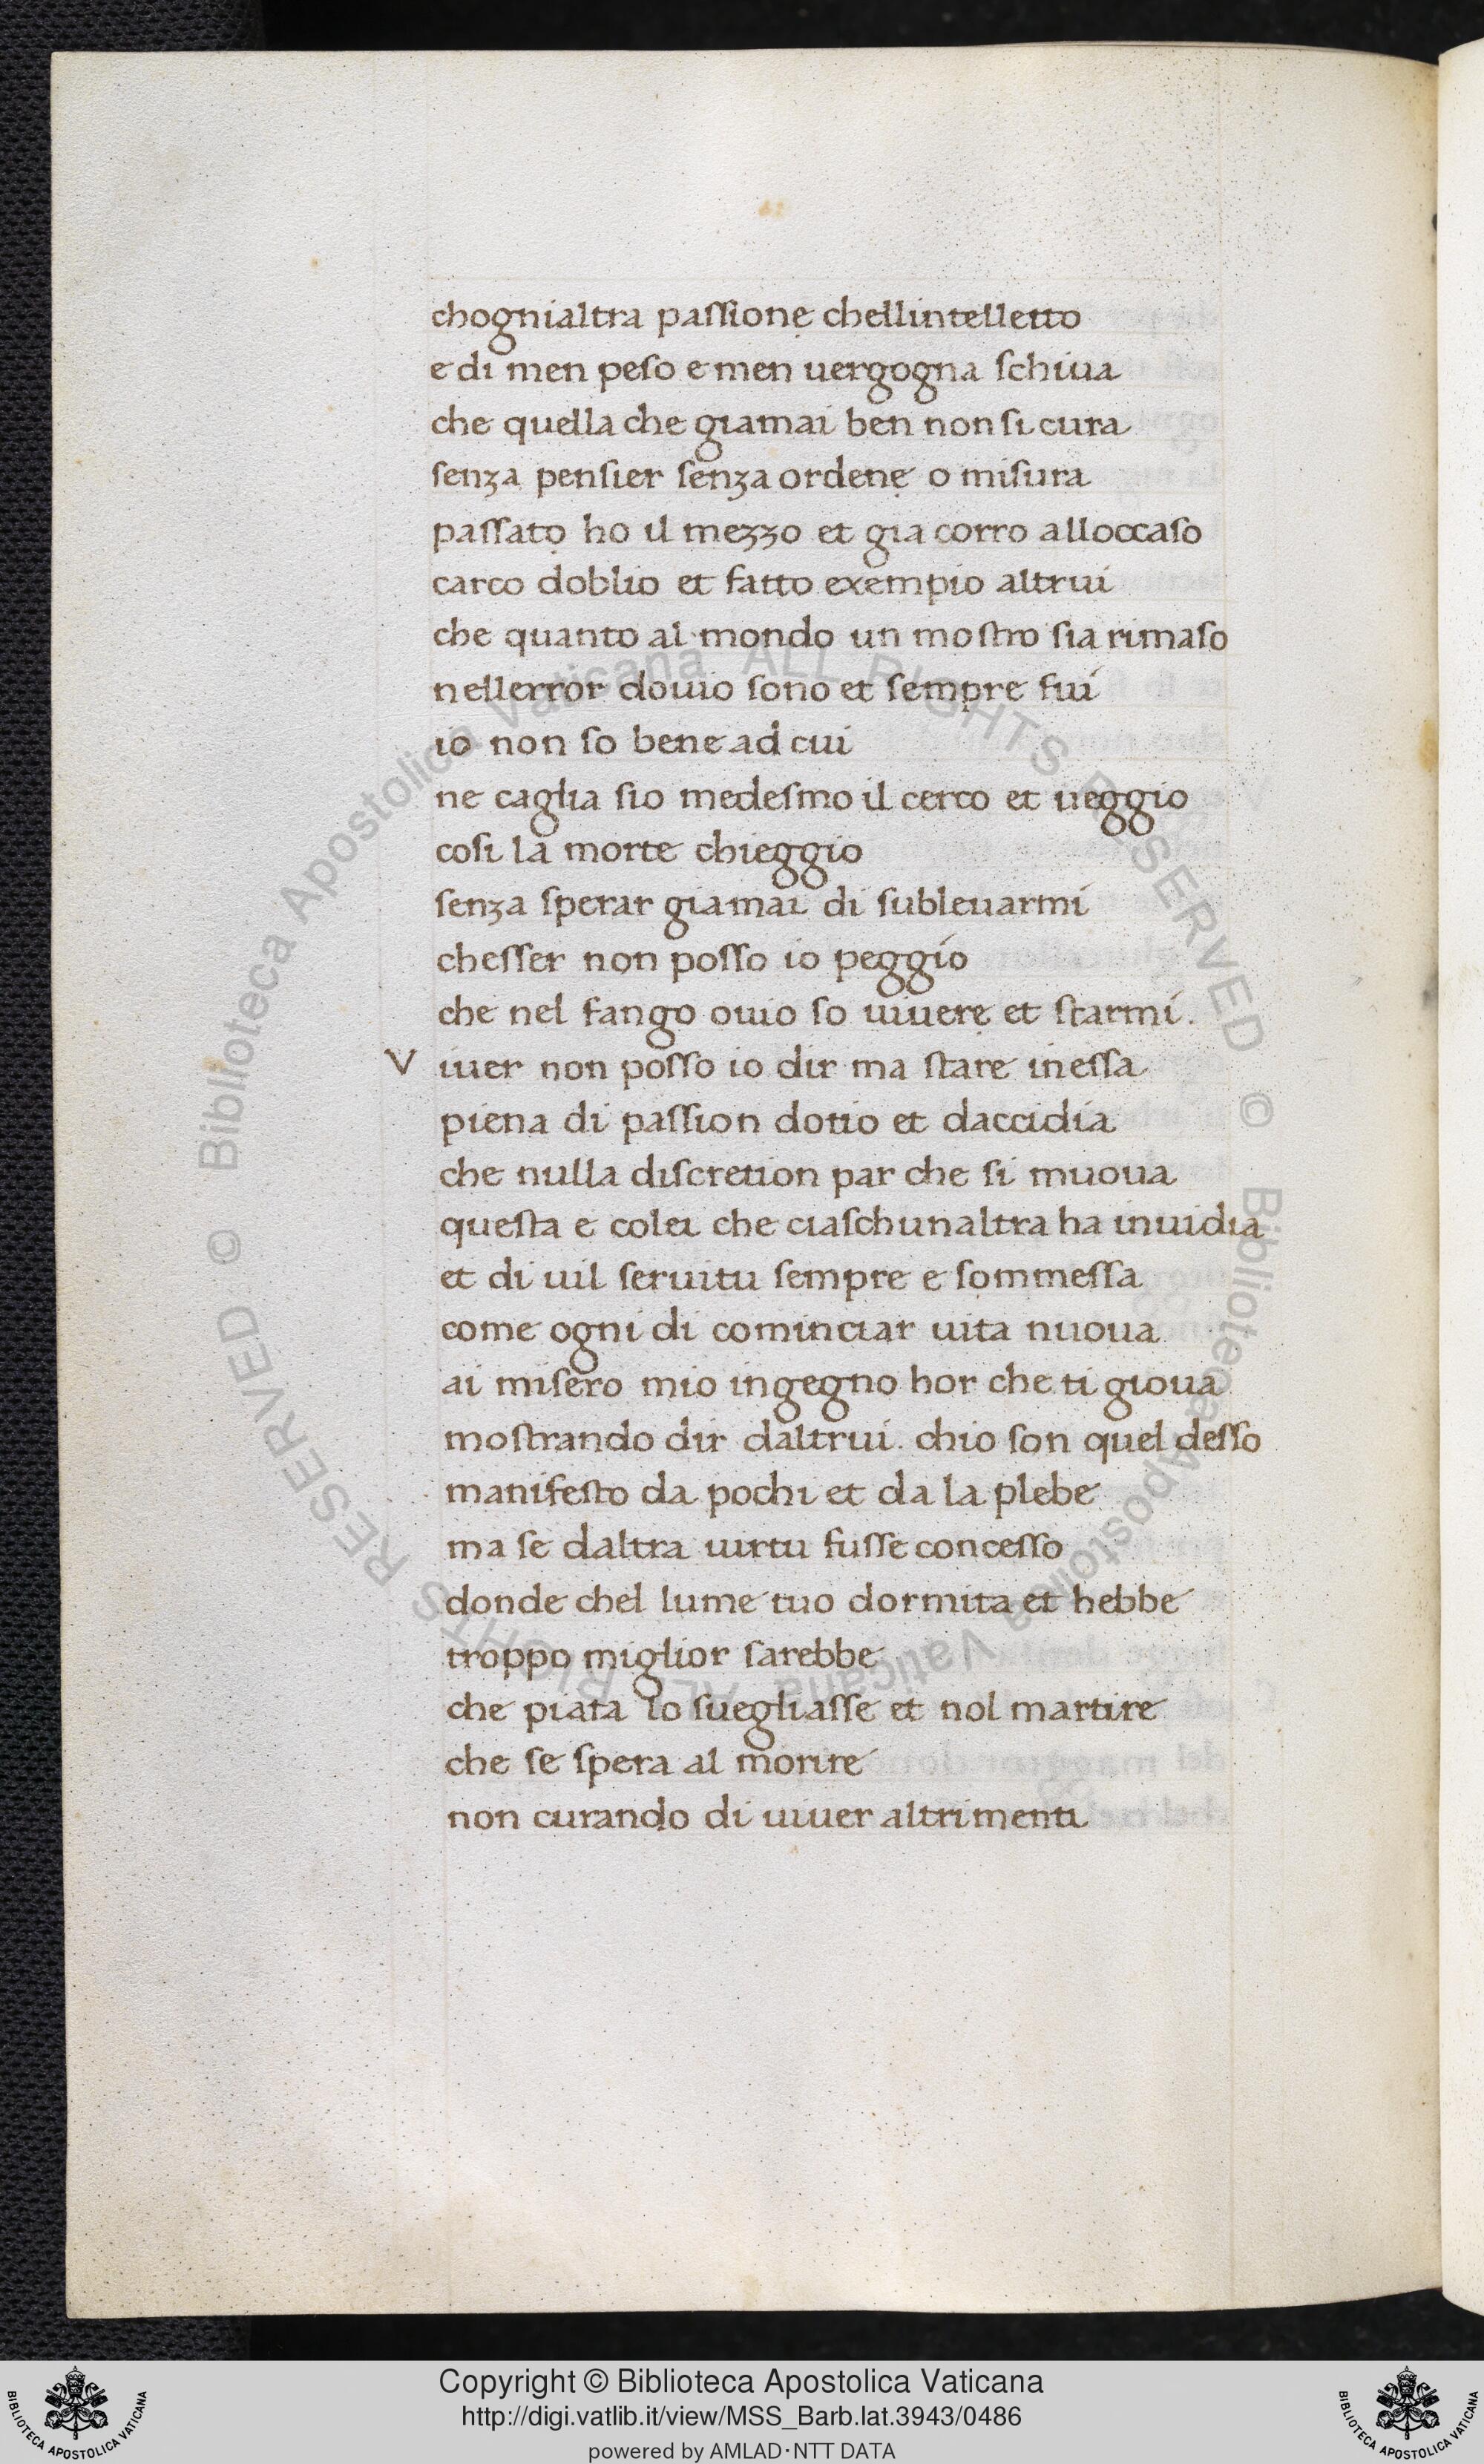 chognialtra paſſionẹ chellintelletto
e di men peſo e men uergogna ſchiua
che quella che giamai ben non ſi cura
ſenza penſier ſenza ordenẹ o miſura
paſſatọ ho il mezzo et gia corro alloccaſo
carco doblio et fatto exempio altrui
che quanto al mondo un moſtro ſia rimaſo
nellerror douio ſono et ſempre fui
io non ſo bene ad cui
ne caglia ſio medeſmo il cerco et ueggio
coſi la morte chieggio
ſenza ſperar giamai di ſubleuarmi
cheſſer non poſſo io peggio
che nel fango ouio ſo uiuerẹ et ſtarmi.
V iuer non poſſo io dir ma ſtare ineſſa
piena di paſſion dotio et daccidia
che nulla diſcretion par che ſi muoua
queſta e colei che ciaſchunaltra ha inuidia
et di uil ſeruitu ſempre e ſommeſſa
come ogni di cominciar uita nuoua
ai miſero mio ingegno hor che ti gioua
moſtrando dir daltrui. chio ſon quel deſſo
manifeſto da pochi et da la plebe
ma ſe daltra uirtu fuſſe conceſſo
donde chel lume tuo dormita et hebbe
troppo miglior ſarebbe
che piata lo ſuegliaſſe et nol martire
che ſe ſpera al morire
non curando di uiuer altrimenti
© Biblioteca Apostolica Vaticana ALL RIGHTS RESERVED © Biblioteca Apostolica Vaticana ALL RIGHTS RESERVED
Copyright © Biblioteca Apostolica Vaticana
http://digi.vatlib.it/view/MSS_Barb.lat.3943/0486
powered by AMLAD·NTT DATA
BIBLIOTECA APOSTOLICA VATICANA
BIBLIOTECA APOSTOLICA VATICANA